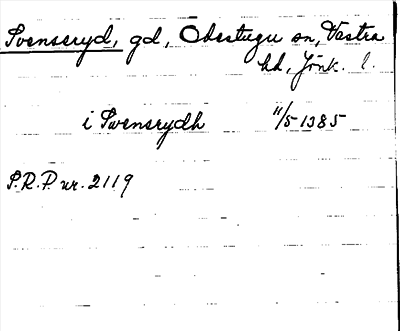 Svensered, gd, Ödestugu sn, Västra
hd, Jönk. l.
i Swensrydh 11/5 1385
S.R.P. nr. 2119